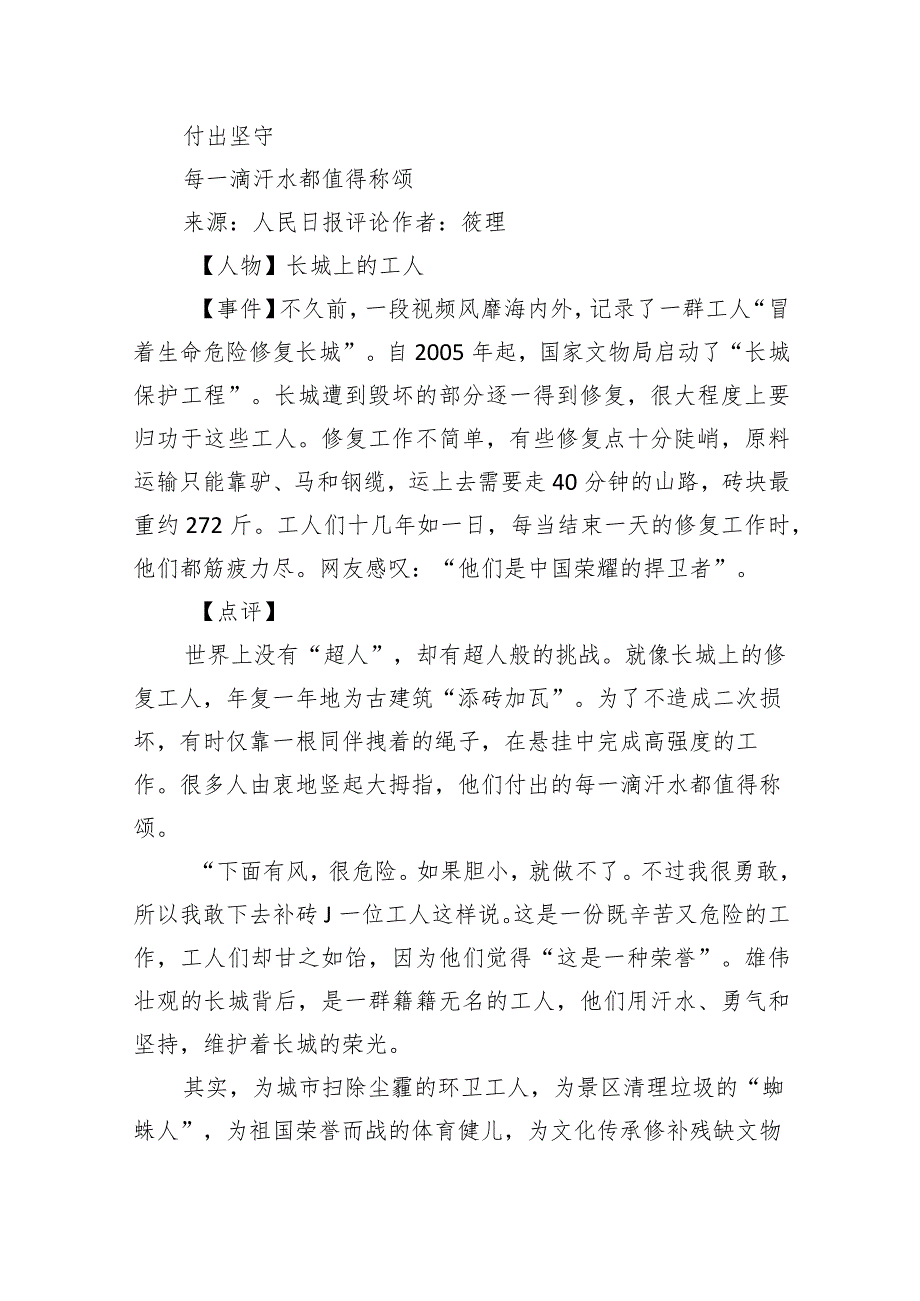 付出坚守
每一滴汗水都值得称颂
来源：人民日报评论作者：筱理
【人物】长城上的工人
【事件】不久前，一段视频风靡海内外，记录了一群工人“冒
着生命危险修复长城”。自2005年起，国家文物局启动了“长城
保护工程”。长城遭到毁坏的部分逐一得到修复，很大程度上要
归功于这些工人。修复工作不简单，有些修复点十分陡峭，原料
运输只能靠驴、马和钢缆，运上去需要走40分钟的山路，砖块最
重约272斤。工人们十几年如一日，每当结束一天的修复工作时，
他们都筋疲力尽。网友感叹：“他们是中国荣耀的捍卫者”。
【点评】
世界上没有“超人”，却有超人般的挑战。就像长城上的修
复工人，年复一年地为古建筑“添砖加瓦”。为了不造成二次损
坏，有时仅靠一根同伴拽着的绳子，在悬挂中完成高强度的工
作。很多人由衷地竖起大拇指，他们付出的每一滴汗水都值得称
颂。
“下面有风，很危险。如果胆小，就做不了。不过我很勇敢，
所以我敢下去补砖J一位工人这样说。这是一份既辛苦又危险的工
作，工人们却甘之如饴，因为他们觉得“这是一种荣誉”。雄伟
壮观的长城背后，是一群籍籍无名的工人，他们用汗水、勇气和
坚持，维护着长城的荣光。
其实，为城市扫除尘霾的环卫工人，为景区清理垃圾的“蜘
蛛人”，为祖国荣誉而战的体育健儿，为文化传承修补残缺文物